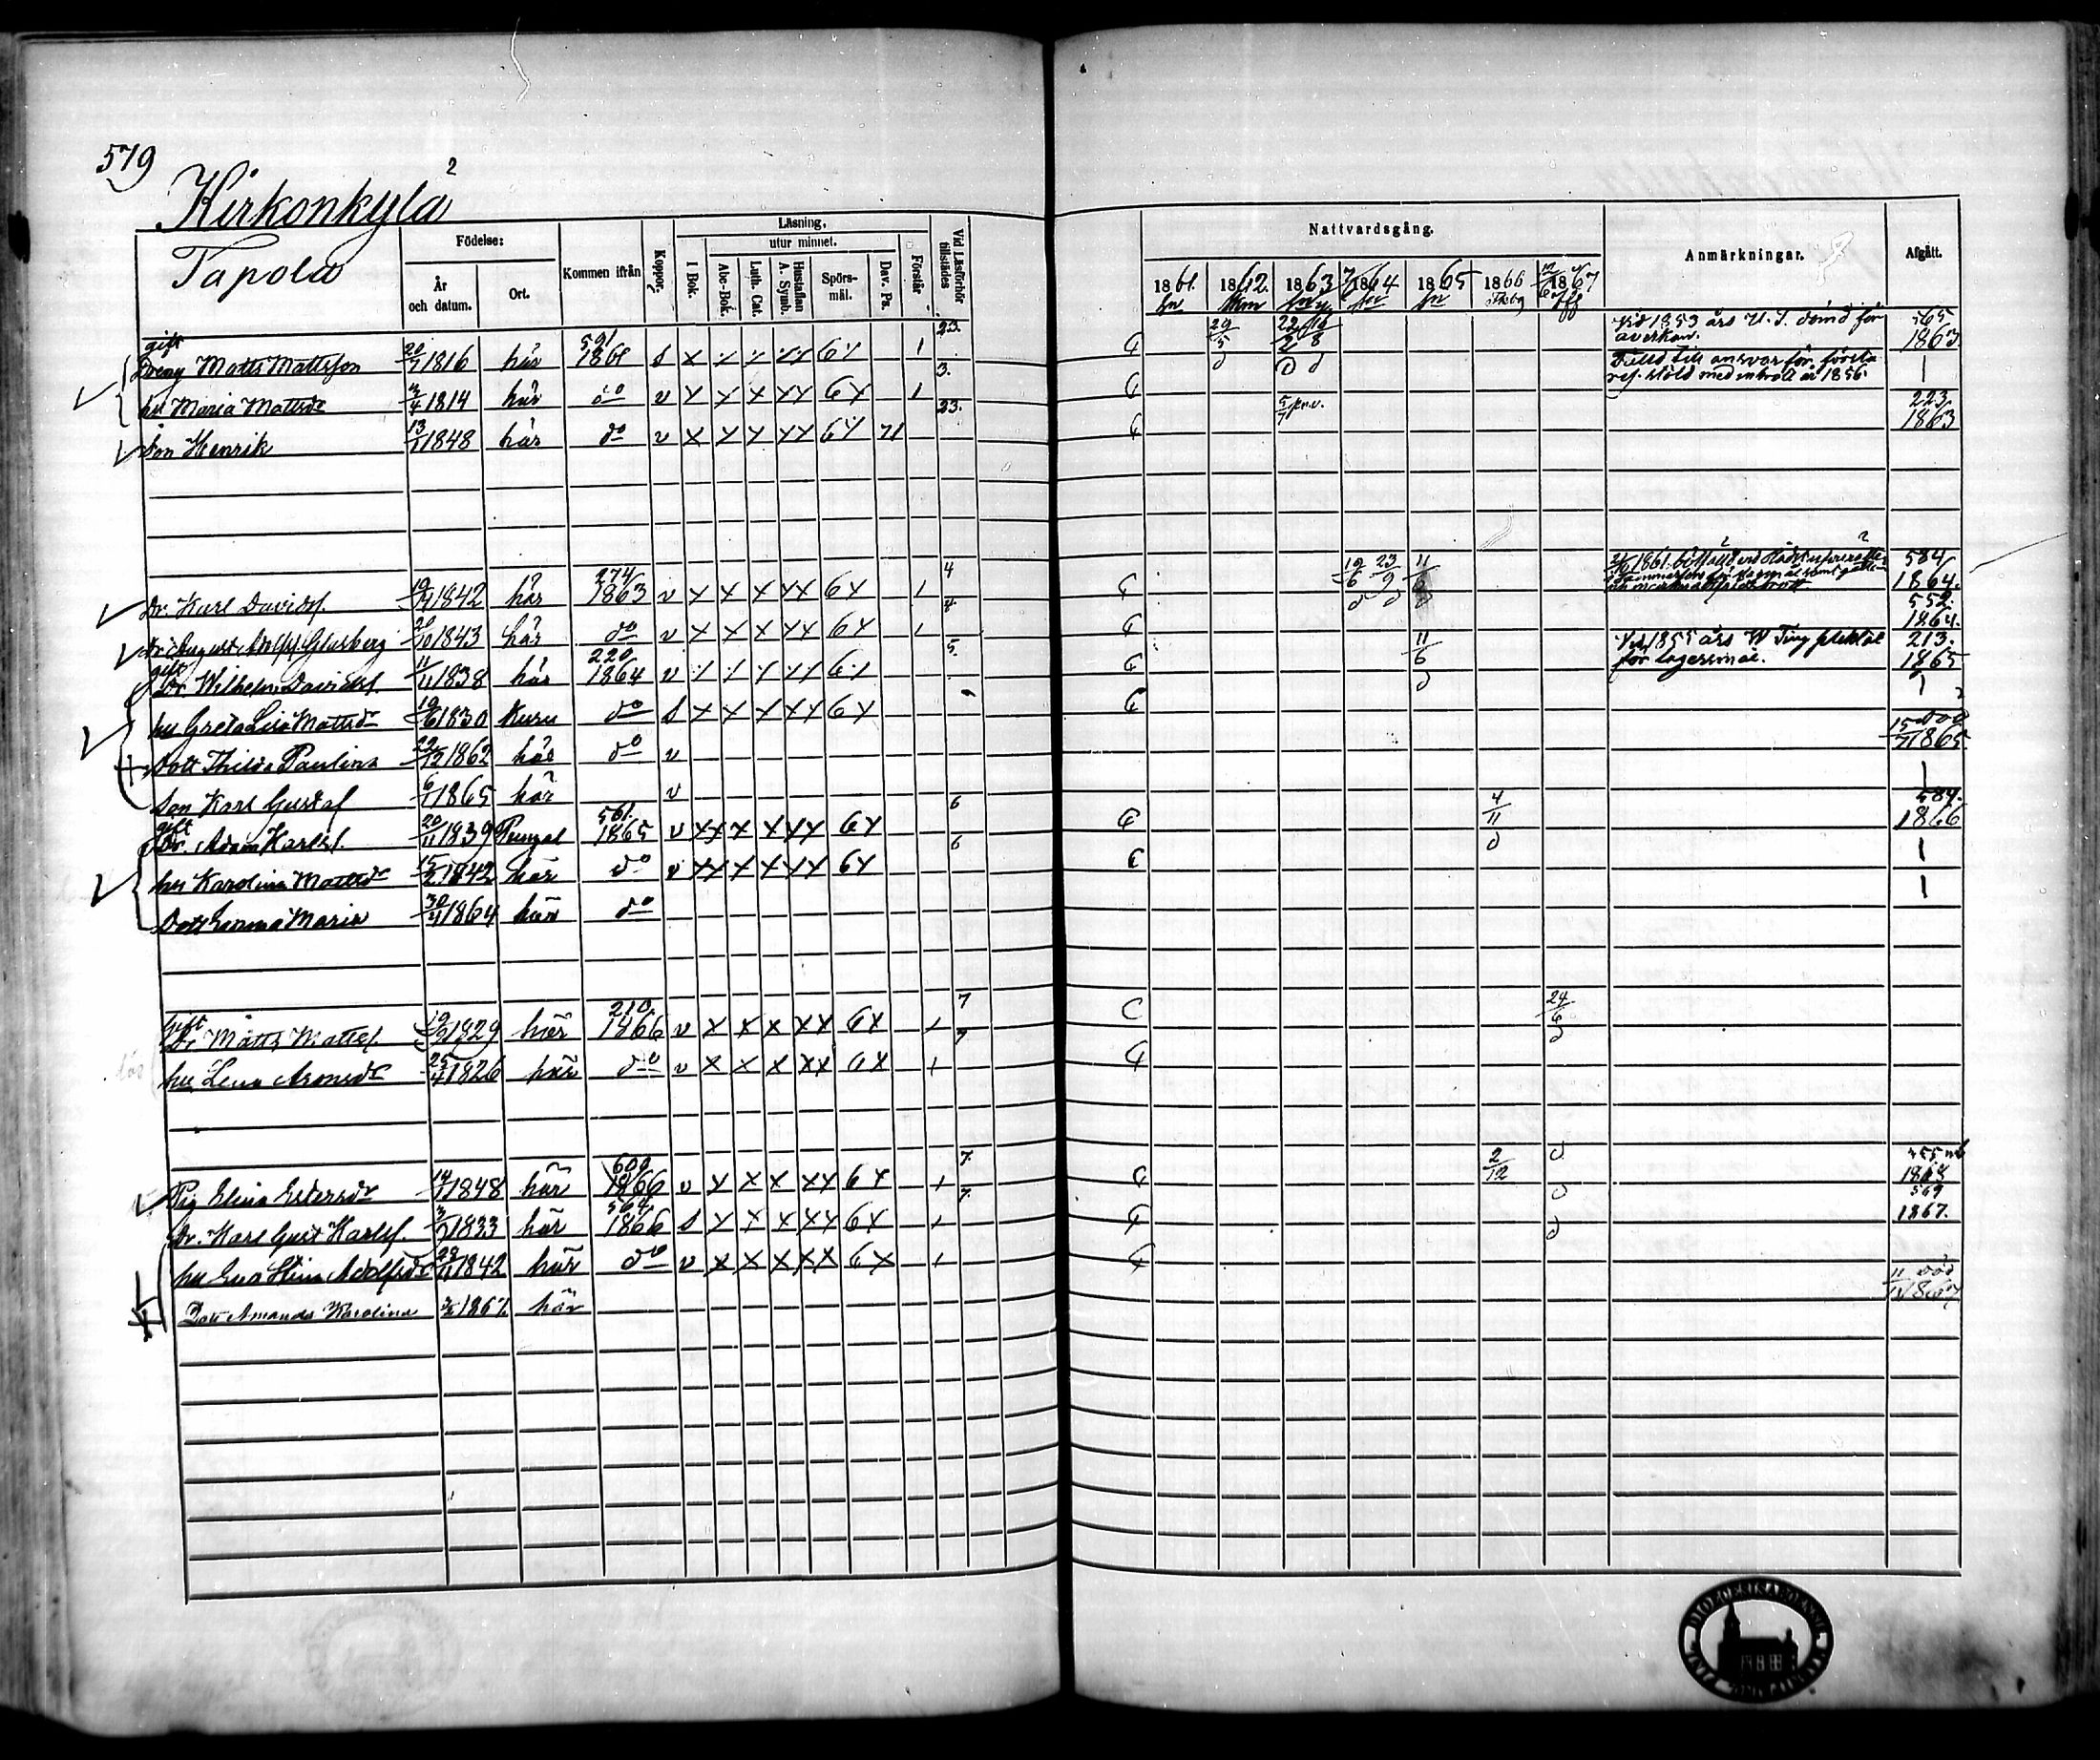 579
Kirkonkylä 2
Tapola
Födelse:
År och datum.
Ort.
Kommen ifrån
Koppor.
Läsning,
I Bok.
utur minnet.
Abc-Bok.
Luth. Cat.
Hustaflan A. Symb.
Spörsmål.
Dav. Ps.
Förstår
Vid Läsförhör tillstädes
Nattvardsgång.
1861. 1862. 1863 1864 1865 1866 1867
Anmärkningar.
Afgått.
gift 591 23. 29 22 16 Vid 1853 års U. T. dömd för 565
Dreng Matts Mattsson 20/7 1816 här 1861 s x 6x 1 5 2 8 åverkan. 1863
3. Fälld till ansvar för första
hu Maria Mattsdr 2/4 1814 här do v x x x xx 6x 1 resp. stöld med inbrott år 1856.
23. 223
Son Henrik 13/1 1848 här do v x x x xx 6x 71 1863
274 4 19 23 11 584
Dr. Karl Davidss. 19/4 1842 här 1863 v x x x xx 6x 1 6 9 6 1864.
4. 552
Dr August Adolf Glasberg 20/10 1843 här do v x x x xx 6x 1 1864.
gift 220 5. 11 Vid 1855 års W Ting pliktat 213.
Dr Wilhelm Davidss. 11/11 1838 här 1864 v 6x 6 för lägersmål. 1865
hu Greta Lisa Mattsdr 19/6 1830 Kuru do s x x x xx 6x
död
Dott Thilda Paulina 22/12 1862 här do v 15/7 1865
Son Karl Gustaf 6/1 1865 här v
gift 561. 6 4 584.
Dr. Adam Karlss. 20/11 1839 Pungal 1865 v xx x x xx 6x 11 1866
6
hu Karolina Mattsdr 15/2 1842 här do v xx x x xx 6x
Dott Emma Maria 30/4 1864 här do
Gift 210 7 24
Dr Matts Mattss. 19/9 1829 här 1866 v x x x xx 6x 1 6
7
hu Lena Aronsdr 25/4 1826 här do v x x x xx 6x 1
600 7. 2
Pig Elina Estersdr 14/1 1848 här 1866 v x x x xx 6x 1 12 1868
564 7. 569
Dr. Karl Gust Karlss. 3/7 1833 här 1866 s x x x xx 6x 1 1867.
hu Eva Stina Adolfsdr 1842 här do v x x x xx 6x 1
död
Dott Amanda Karolina 3/5 1867 här 1867